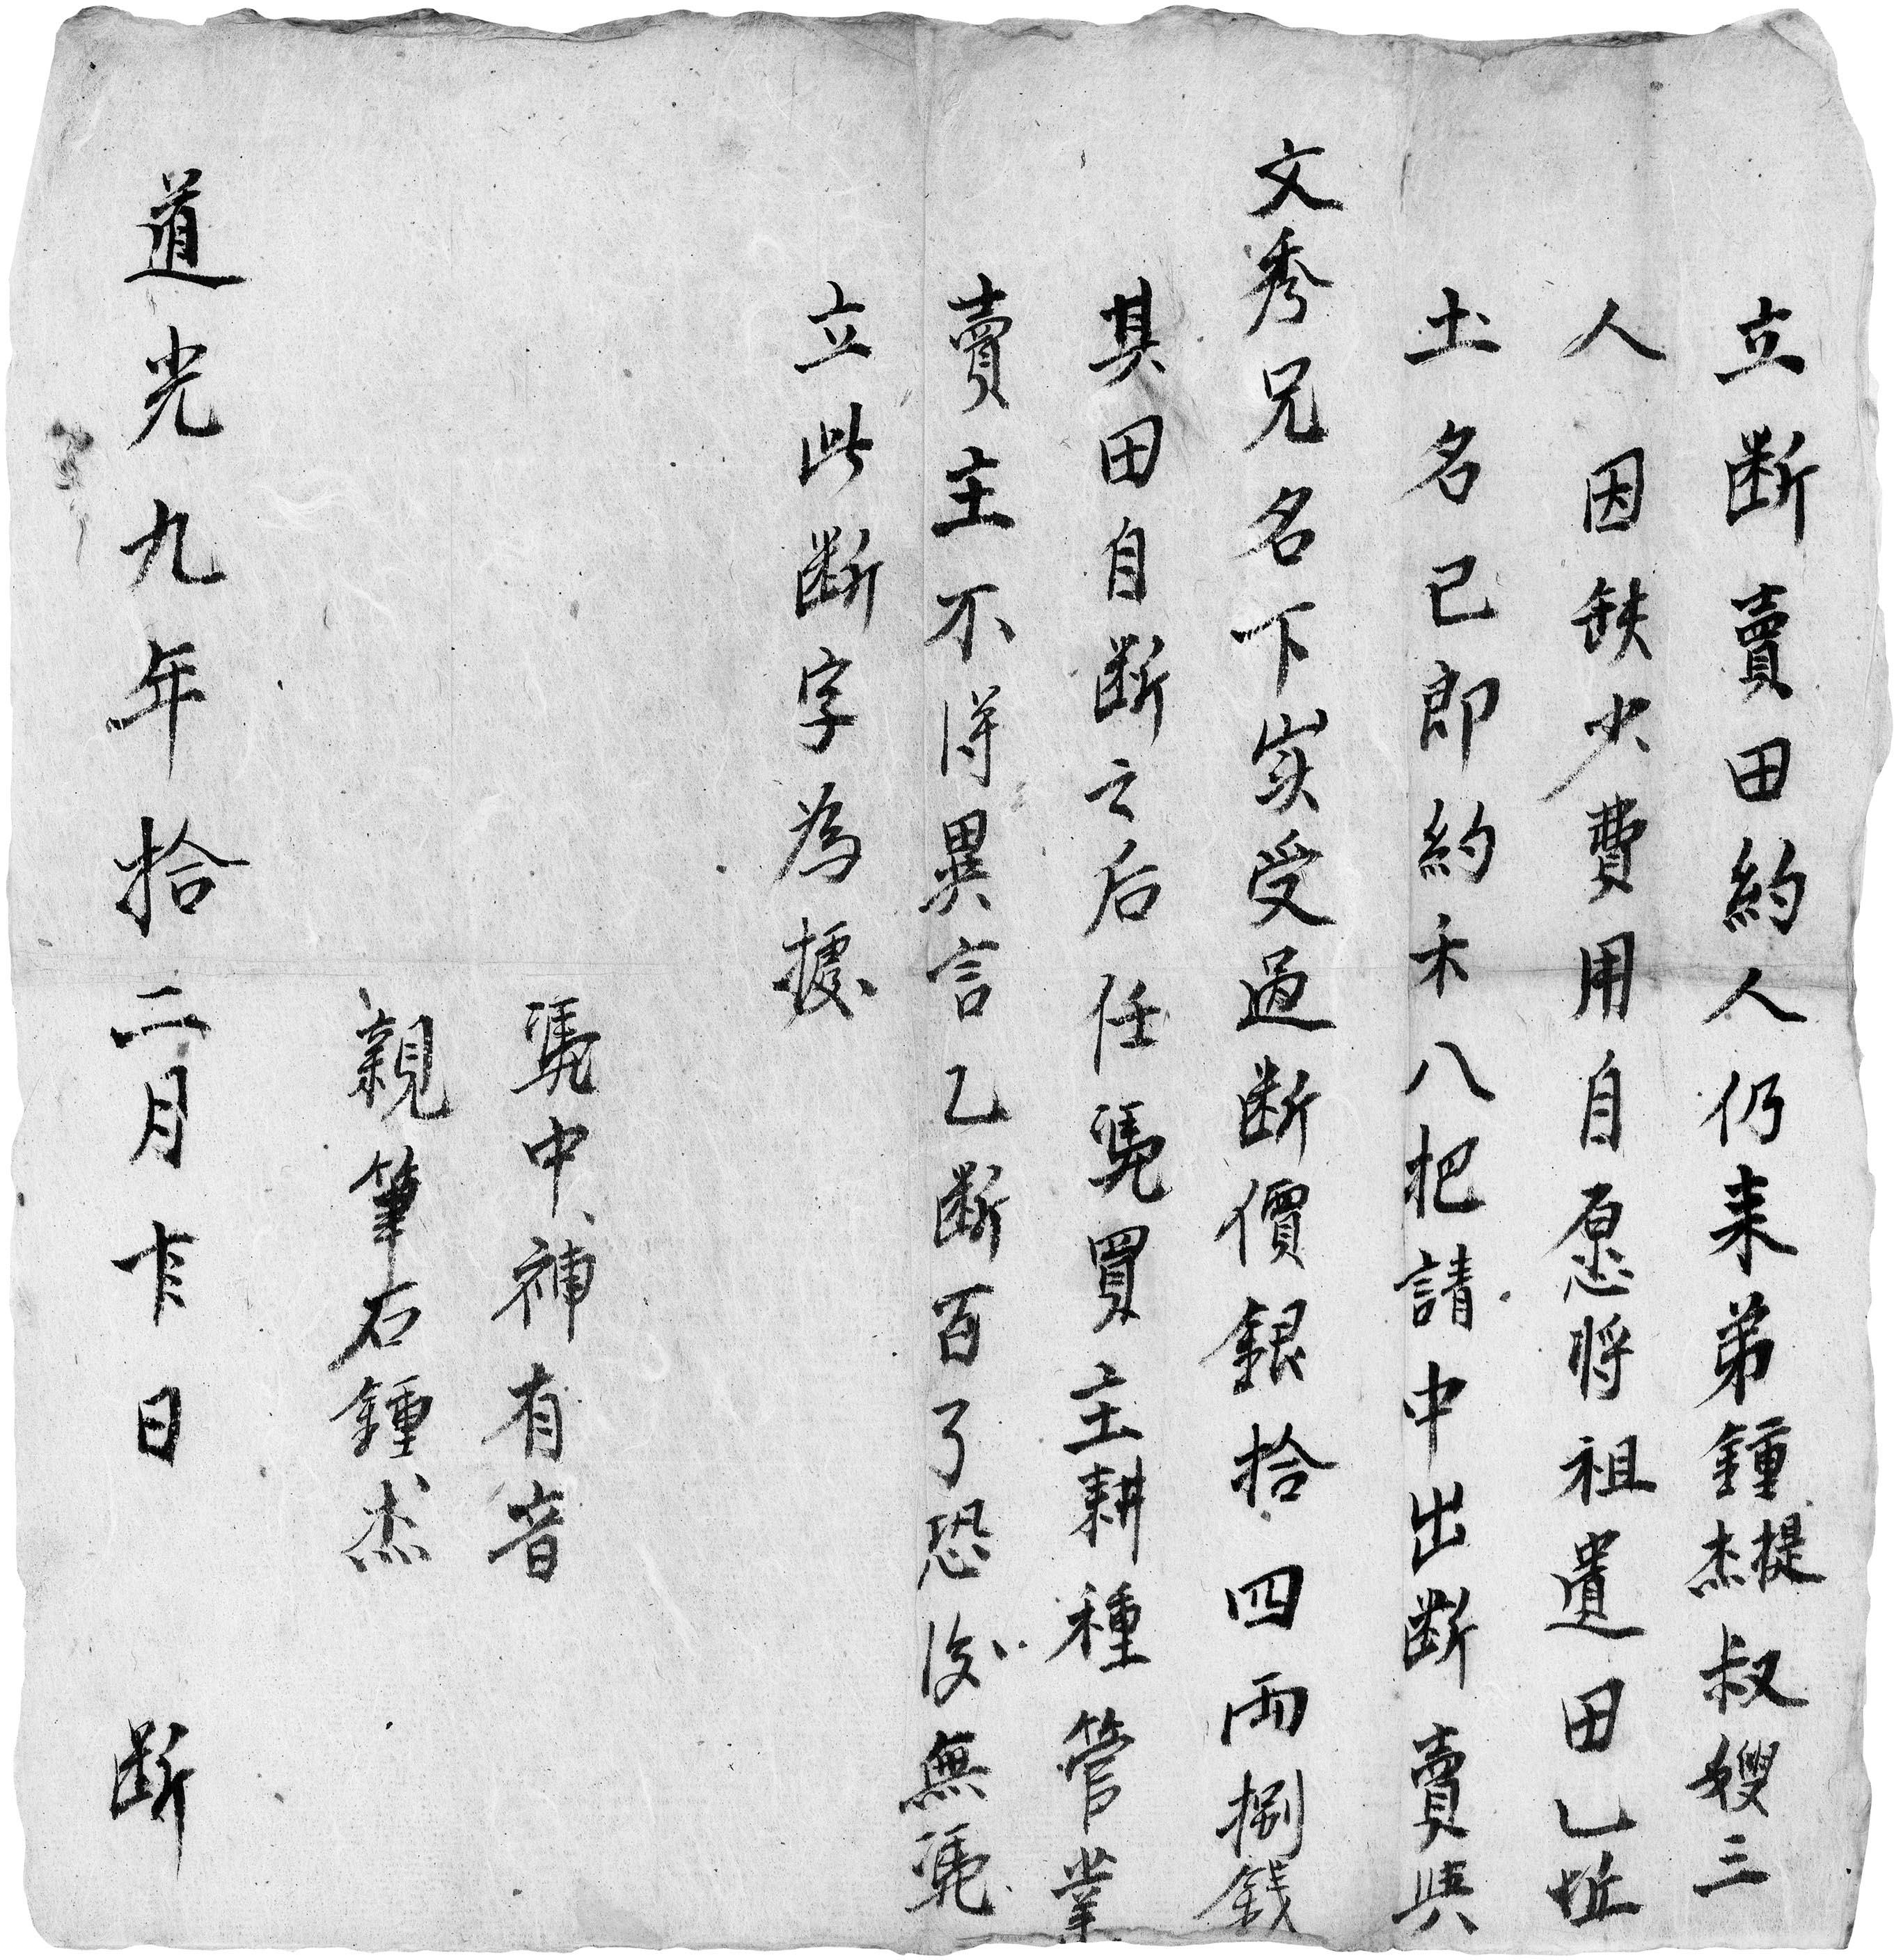 立断賣田約人仍耒弟鍾提杰叔嫂三
人因缺少費用自愿將祖遺田乙坵
土名已即約禾八把請中出断賣與
文秀兄名下实受過断價銀拾四兩捌錢
其田自断之后任凴買主耕種管業
賣主不得異言乙断百了恐後無凴
立此断字為據
凴中神有音
親筆石鍾杰
道光九年拾二月日 断